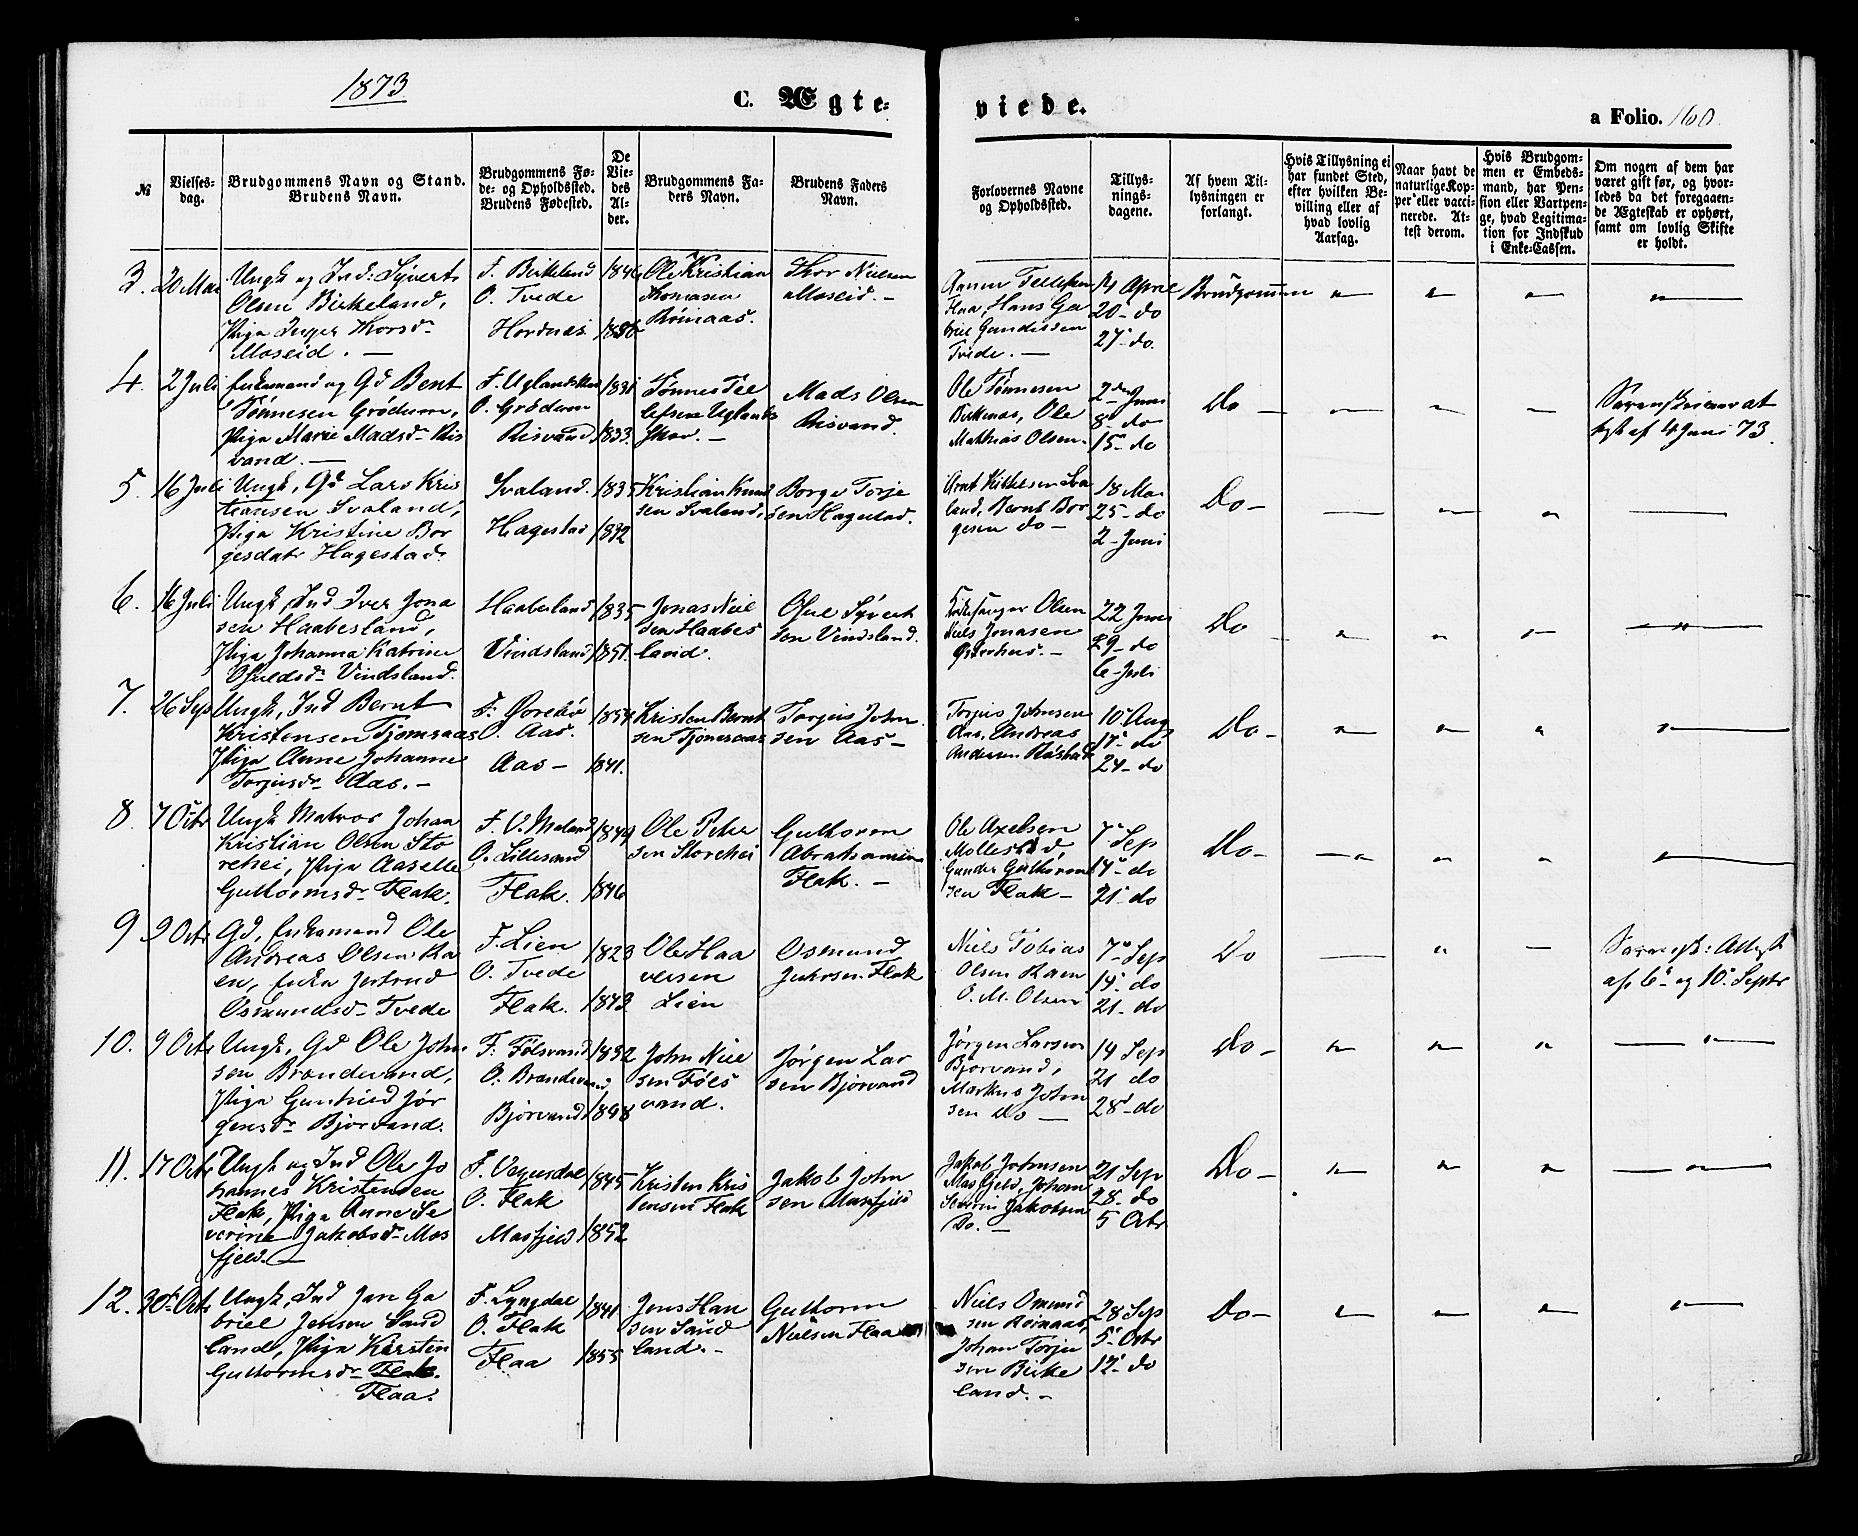 1873
C. Ægte=
viede.
a Folio. 160.
№
Vielses-
dag.
Brudgommens Navn og Stand.
Brudens Navn.
Brudgommens Fø-
de- og Opholdssted.
Brudens Fødested.
De
Vie-
des
Al-
der.
Brudgommens Fa-
ders Navn.
Brudens Faders
Navn.
Forlovernes Navne
og Opholdssted.
Tillys-
nings-
dagene.
Af hvem Til-
lysningen er
forlangt.
Hvis Tillysning ei
har fundet Sted,
efter hvilken Be-
villing eller af
hvad lovlig
Aarsag.
Naar havt de
naturlige Kop-
per eller vacci-
nerede. At-
test derom.
Hvis Brudgom-
men er Embeds-
mand, har Pen-
sion eller Vartpen-
ge, hvad Legitima-
tion for Indskud
i Enke-Cassen.
Om nogen af dem har
været gift før, og hvor-
ledes da det foregaaen-
de Ægteskab er ophørt,
samt om lovlig Skifte
er holdt.
3. 20 Mai
Ungk og Ind: Syvert
Olsen Birkeland,
Pige Inger Thorsd
Moseid. —
F. Birkeland
O. Tvede
Hordnes
1846
1850
Ole Kristian
Thomasen
Röinaas.
Thor Nielsen
Moseid. —
Flaa, Hans Ga
briel Gundersen
Tvede. —
14 April
20 - do
27 - do.
Brudgommen
4. 2 Juli
Enkemand og Gd Bent
Tönnesen Grödum,
Pige Marie Madsd Ris
vand. —
F. Uglandskar
O. Grödum
Risvand
1831
1833.
Tönnes Tel
lefsen Uglands
Skar. —
Mads Olsen
Risvand.
Ole Tönnesen
Birkenes, Ole
Mathias Olsen
2den Juni
8 - do
15 - do
Do —
af 4 Juni 73.
5. 16 Juli
Ungk, Gd Lars Kris
tiansen Svaland,
Pige Kristine Bor
gesdatr Hagestad
Svaland.
Hagestad
1835
1832
Kristian Knud
sen Svaland,
Borge Torje
sen Hagestad.
land, Bernt Bor
gesen do —
18 Mai
25 - do
2 - Juni
Do —
6. 16 Juli
Ungk, Ind Iver Jona
sen Haabesland,
Pige Johanna Katrine
Osuldsd Vindsland.
Haabesland
Vindsland
1835
1851.
Jonas Niel
sen Haabes
land.
Osul Syvert
sen Vindsland.
Kirkesanger Olsen
Niels Jonasen
Österhus. —
22 Juni
29 - do
6 - Juli
Do
7. 26 Sep
Ungk, Ind Bernt
Kristensen Tjomsaas
Pige Anne Johanne
Torjusd Aas. —
F. Ørebö
O. Aas.
Aas —
1854
1841.
Kristen Bernt
sen Tjomsaas
Torjus John
sen Aas —
Torjus Johnsen
Aas, Andreas
Andersen
10 Aug
17 - do
24 - do
Do —
8. 7 Octr
Ungk Matros Johan
Kristian Olsen Sto
rehei, Pige Aaselle
Guttormsd Flak.
F. V. Moland
O. Lillesand
Flak.
1849
1846
Ole Peter
sen Storehei
Guttorm
Abrahamsen
Flak. —
Ole Axelsen
Mollestad
Gunder Guttorm
sen Flak —
7 Sep
14 - do
21 - do
Do —
9 9 Octr
Gd, Enkemand Ole
Andreas Olsen Ra
en, Enke Jertrud
Osmundsd Tvede
F. Lien
O. Tvede
Flak.
1823
1843
Ole Haa
versen
Lien
Osmund
Flak
Niels Tobias
Olsen Raen
O. M. Olsen
7 - Sep
14 - do
21 - do
Do
Attest
af 6 og 10 Septr
10. 9 Octr
Ungk, Gd Ole John
sen Brandsvand,
Pige Gunhild Jör
gensd Bjorvand.
F. Fölsvand
O. Brandsvand
Bjorvand
1832
1848
John Niel
sen Föls
vand.
Jörgen Lar
sen Bjorvand
Jörgen Larsen
Bjorvand,
Markus John
sen Do —
14 Sep
21 do
28 - do
Do —
11. 17 Octr
Ungk og Ind Ole Jo
hannes Kristensen
Flak, Pige Anne Se
verine Jakobsd Mos
fjeld. —
F. Vegusdal
O. Flak
Mosfjeld
1845
1852
Kristen Kris
tensen Flak
Jakob John
sen Mosfjeld
Jakob Johnsen
Mosfjeld, Johan
Severin Jakobsen
Do. —
21 Sep
28 - do
5 Octr
Do —
12. 30 Octr
Ungk, Ind Jan Ga
briel Jensen Sand
land, Pige Kirsten
Guttormsd Flak.
Flaa.
F. Lyngdal
O. Flak
Flaa
1841
1855
Jens Han
sen Sand
land. —
Guttorm
Nielsen Flaa
Niels Omund
sen Röinaas,
Johan Torju
sen Birke
land. —
28 Sep
5 Octr
12 - do
Do —